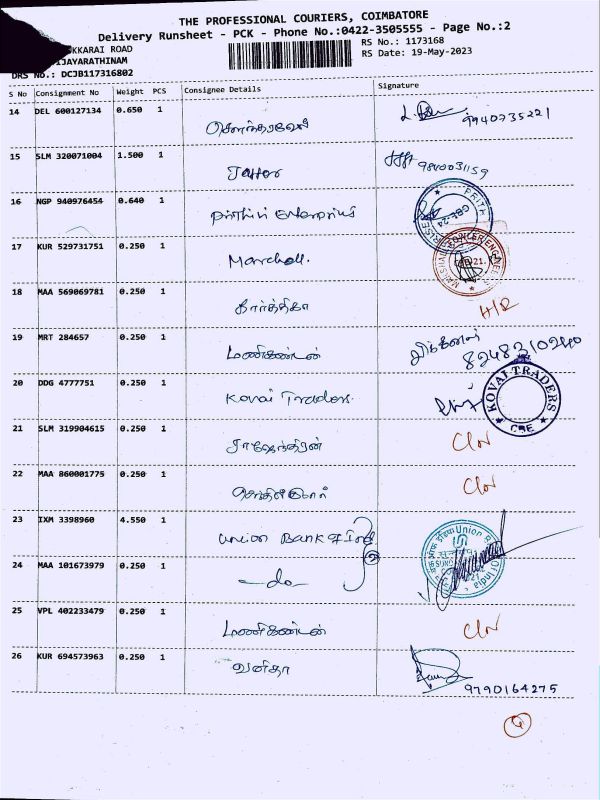 THE PROFESSIONAL COURIERS, COIMBATORE
Delivery Runsheet - PCK - Phone No.:0422-3505555 - Page No.:2
UKKARAI ROAD
RS No.: 1173168
IJAYARATHINAM
RS Date: 19-May-2023
DRS No.: DCJB117316802
S No Consignment No Weight PCS Consignee Details Signature
14 DEL 600127134 0.650 1 9940735221
15 SLM 320071004 1.500 1 9840031159
16 NGP 940976454 0.640 1 Prithvi Enterprises
17 KUR 529731751 0.250 1 Marshall.
18 MAA 569069781 0.250 1 கார்த்திகா H/R
19 MRT 284657 0.250 1 மணிகண்டன் 8248310240
20 DDG 4777751 0.250 1 Kovai Traders. KOVAI TRADERS CBE
21 SLM 319904615 0.250 1 ராஜேந்திரன்
22 MAA 860001775 0.250 1 செந்தில்குமார்
23 IXM 3398960 4.550 1 Union Bank of Ind Union
24 MAA 101673979 0.250 1 -do- of India
25 VPL 402233479 0.250 1 மணிகண்டன்
26 KUR 694573963 0.250 1 வனிதா 9790164275